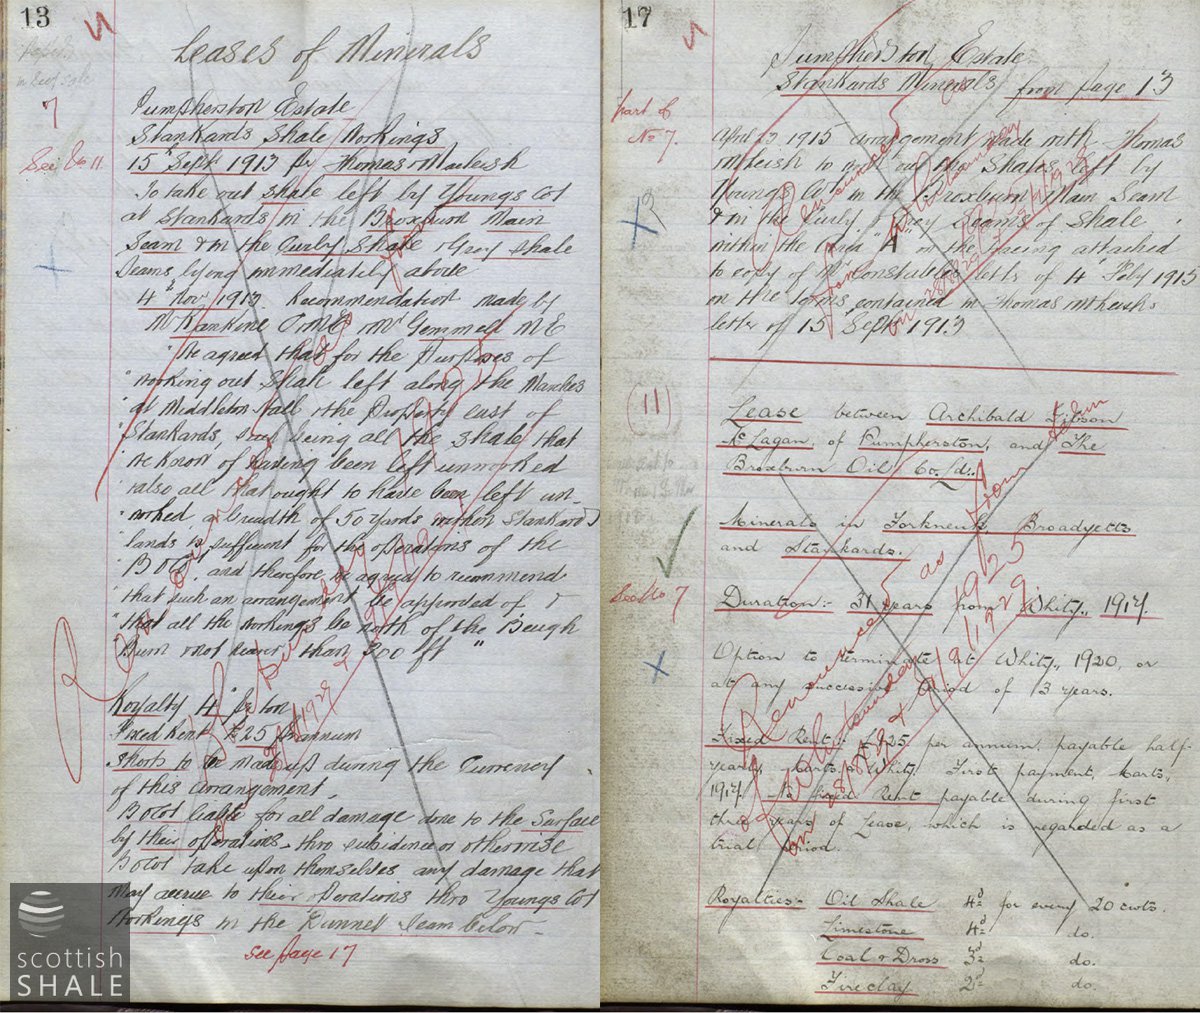 13
Leases of Minerals
7
Pumpherston Estate
Stankards Shale Workings
See No 11.
15 Sept 1913 pr Thomas McLeish
To take out shale left by Youngs Coy
at Stankards in the Broxburn Main
Seam & in the Curly Shale & Grey Shale
Seams lying immediately above
4th Nov 1913 Recommendation made by
Mr Rankine C & ME & Mr Gemmell M E
"We agreed that for the Purposes of
"working out Shale left along the Marches
"at Middleton Hall & the Property east of
"Stankards, being all the shale that
"we know of having been left unworked
"also all that ought to have been left un-
"worked, a breadth of 50 yards within Stankards
"lands is sufficient for the operations of the
"B O Co, and therefore we agreed to recommend
"that such an arrangement be approved of &
"that all the workings be north of the Beugh
"Burn & not nearer than 300 ft "
Royalty 4d per ton
Fixed Rent £25 per annum
Shorts to be made up during the Currency
of this arrangement.
B O Co liable for all damage done to the Surface
by their operations thro subsidence or otherwise
B O Co take upon themselves any damage that
may accrue to their operations thro Youngs Co
Workings in the Dunnet Seam below.
See page 17
Renounced as from
28/8/29 & 9/11/1929
17
Pumpherston Estate
Stankards Minerals from page 13
Part of
No 7.
April 13 1915 arrangement made with Thomas
McLeish to work out the Shales left by
Youngs Co in the Broxburn Main Seam
& in the Curly & Grey Seams of Shale
within the area "A" on the tracing attached
to copy of Mr Constable's letter of 4 Feby 1913
on the terms contained in Thomas McLeish's
letter of 15 Sept 1913
Renounced
from
11
Lease between Archibald Gibson
McLagan, of Pumpherston, and The
Broxburn Oil Co. Ld.,
Minerals in Forkneuk, Broadyetts
and Stankards.
See No 7
Duration:- 31 years from Whity., 1914.
Option to terminate at Whity., 1920, or
at any successive period of 3 years.
Fixed Rent:- £25 per annum, payable half-
yearly, Marts. & Whity. First payment, Marts.,
1917. No fixed Rent payable during first
three years of Lease, which is regarded as a
trial period.
Renounced as from
Whitsunday 1925
on 28/8/29 & 9/11/29
Royalties- Oil Shale 4d for every 20 cwts.
Limestone 4d do.
Coal & Dross 3d do.
Fireclay 2d do.
scottish
SHALE